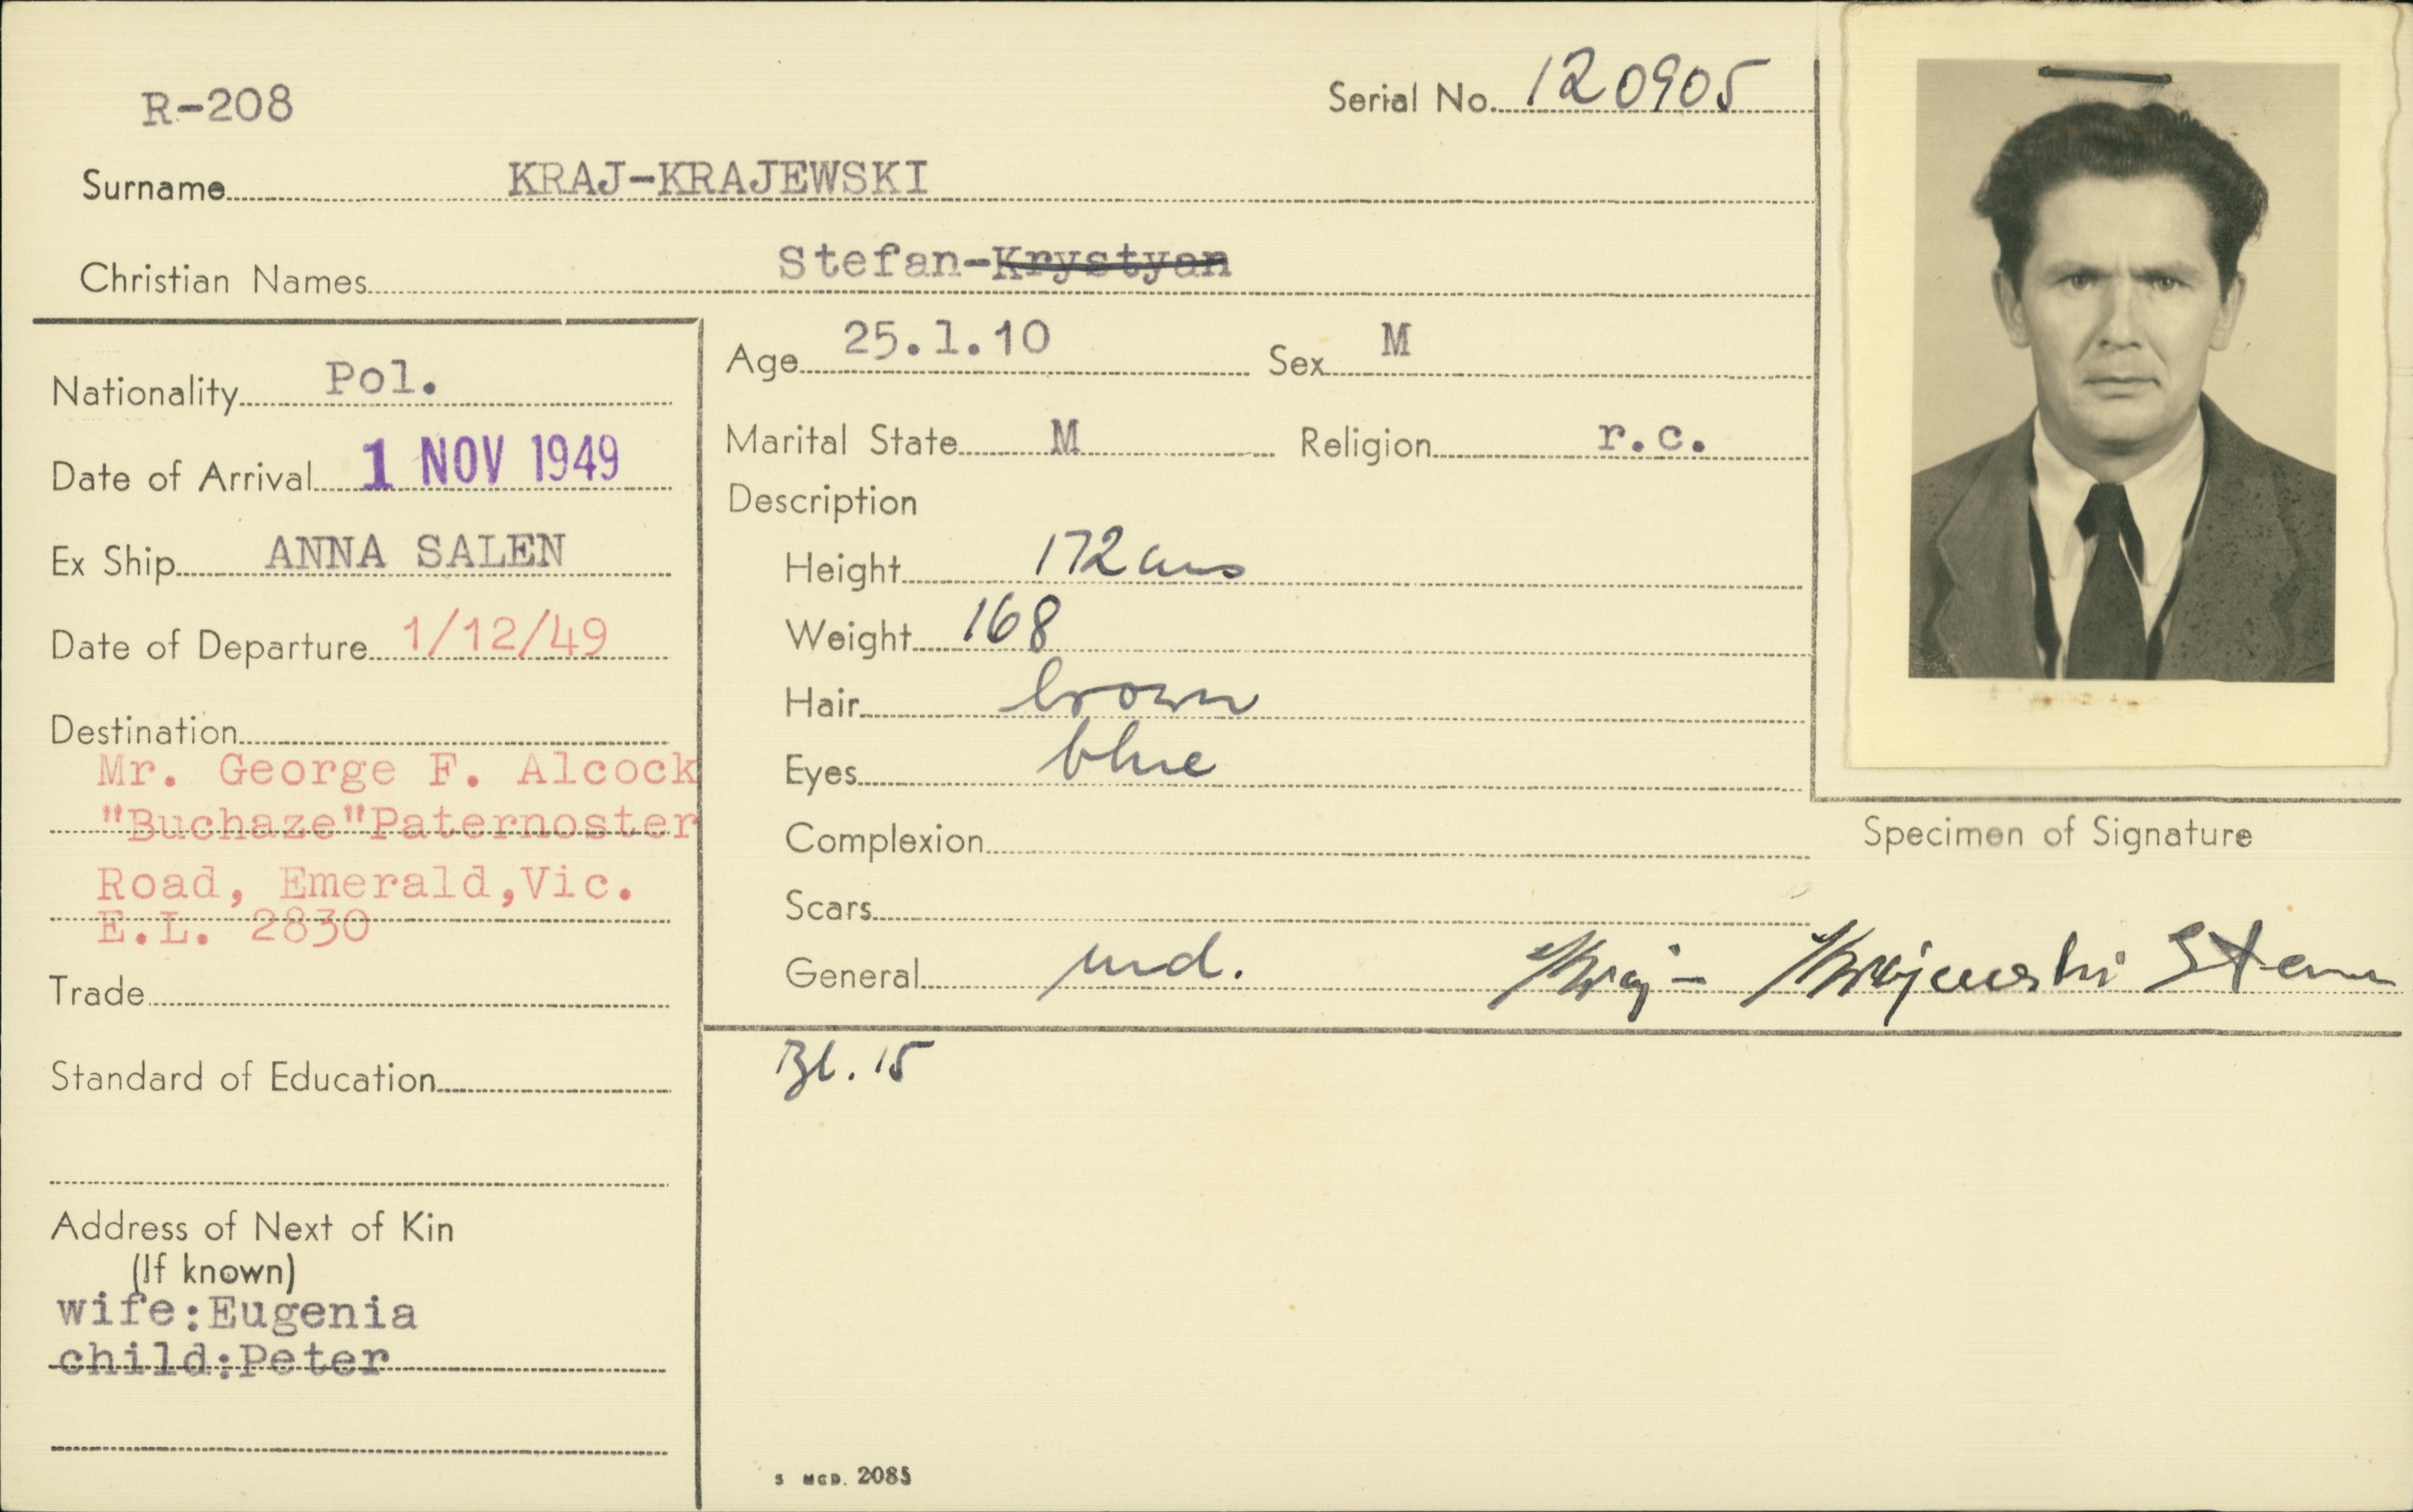 R-208
Serial No. 120905
Surname KRAJ-KRAJEWSKI
Christian Names Stefan-Krystyan
Nationality Pol.
Date of Arrival 1 NOV 1949
Ex Ship ANNA SALEN
Date of Departure 1/12/49
Destination
Mr. George F. Alcock
"Buchaze"Paternoster
Road, Emerald,Vic.
E.L. 2830
Trade
Standard of Education
Address of Next of Kin
(If known)
wife:Eugenia
child:Peter
Age 25.1.10 Sex M
Marital State M Religion r.c.
Description
Height 172 cms
Weight 168
Hair brown
Eyes blue
Complexion
Scars
General md.
Specimen of Signature
Kraj - Krajewski
Bl. 15
S MGD. 2085